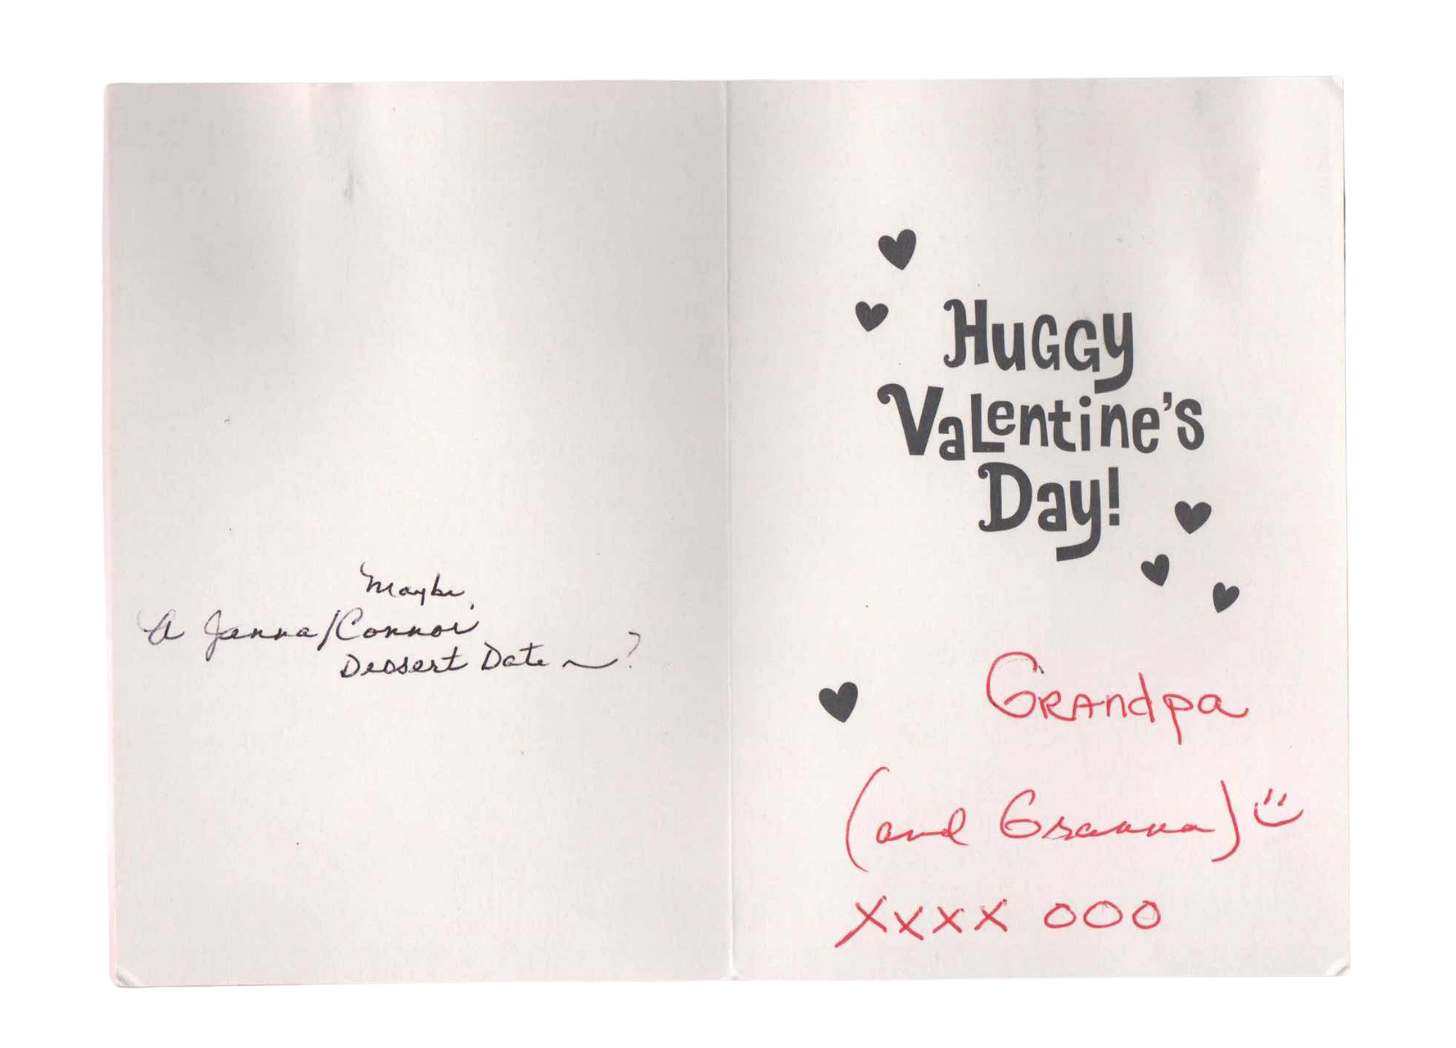 Maybe,
A Janna/Connor
Dessert Date ~?
Huggy
Valentine's
Day!
Grandpa
(and Granna) ü
XXXX OOO